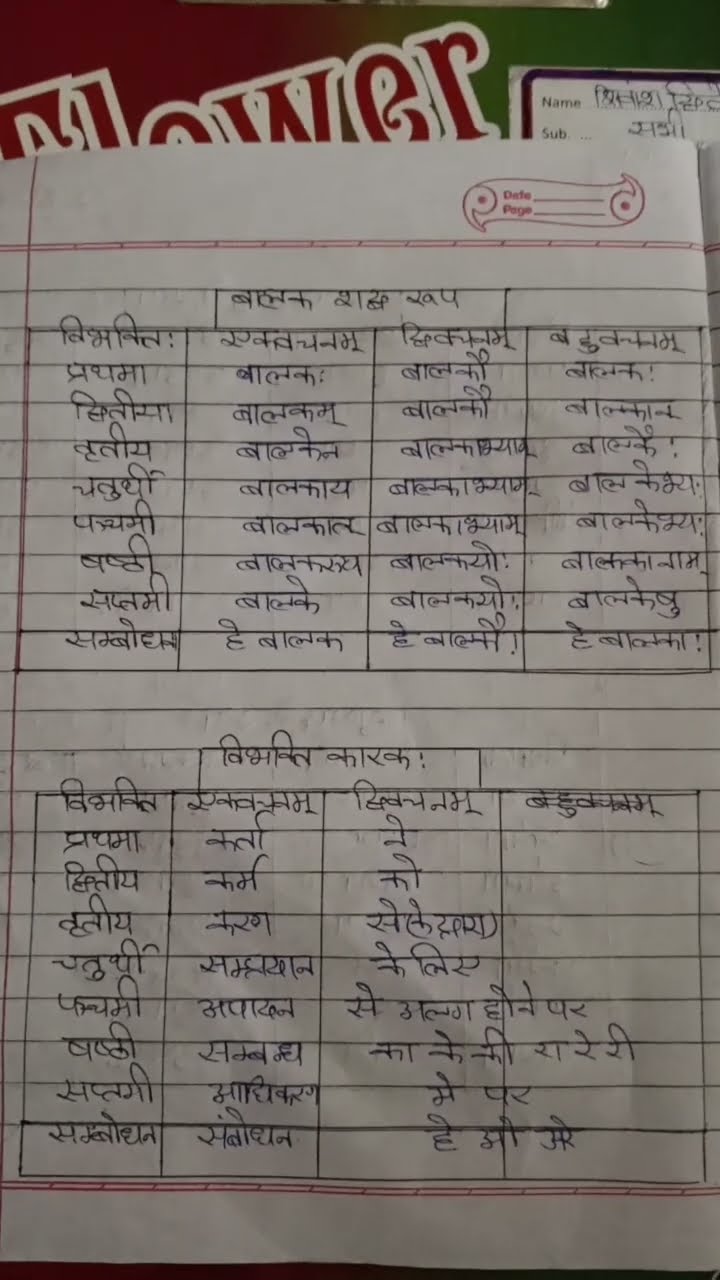 Flower
Name
Sub. ...
Date
Page
बालक शब्द रूप
विभक्ति: एकवचनम् द्विवचनम् बहुवचनम्
प्रथमा बालक: बालकौ बालक:
द्वितीया बालकम् बालकौ बालकान्
तृतीय बालकेन बालकाभ्याम् बालकै:
चतुर्थी बालकाय बालकाभ्याम् बालकेभ्य:
पञ्चमी बालकात् बालकाभ्याम् बालकेभ्य:
षष्ठी बालकस्य बालकयो: बालकानाम्
सप्तमी बालके बालकयो: बालकेषु
सम्बोधन हे बालक हे बालकौ! हे बालका!
विभक्ति कारक:
विभक्ति एकवचनम् द्विवचनम् बहुवचनम्
प्रथमा कर्ता ने
द्वितीय कर्म को
तृतीय करण से(के द्वारा)
चतुर्थी के लिए
पञ्चमी अपादन से अलग होने पर
षष्ठी सम्बन्ध का के की रा रे री
सप्तमी आधिकरण मे पर
सम्बोधन संबोधन हे ओ अरे